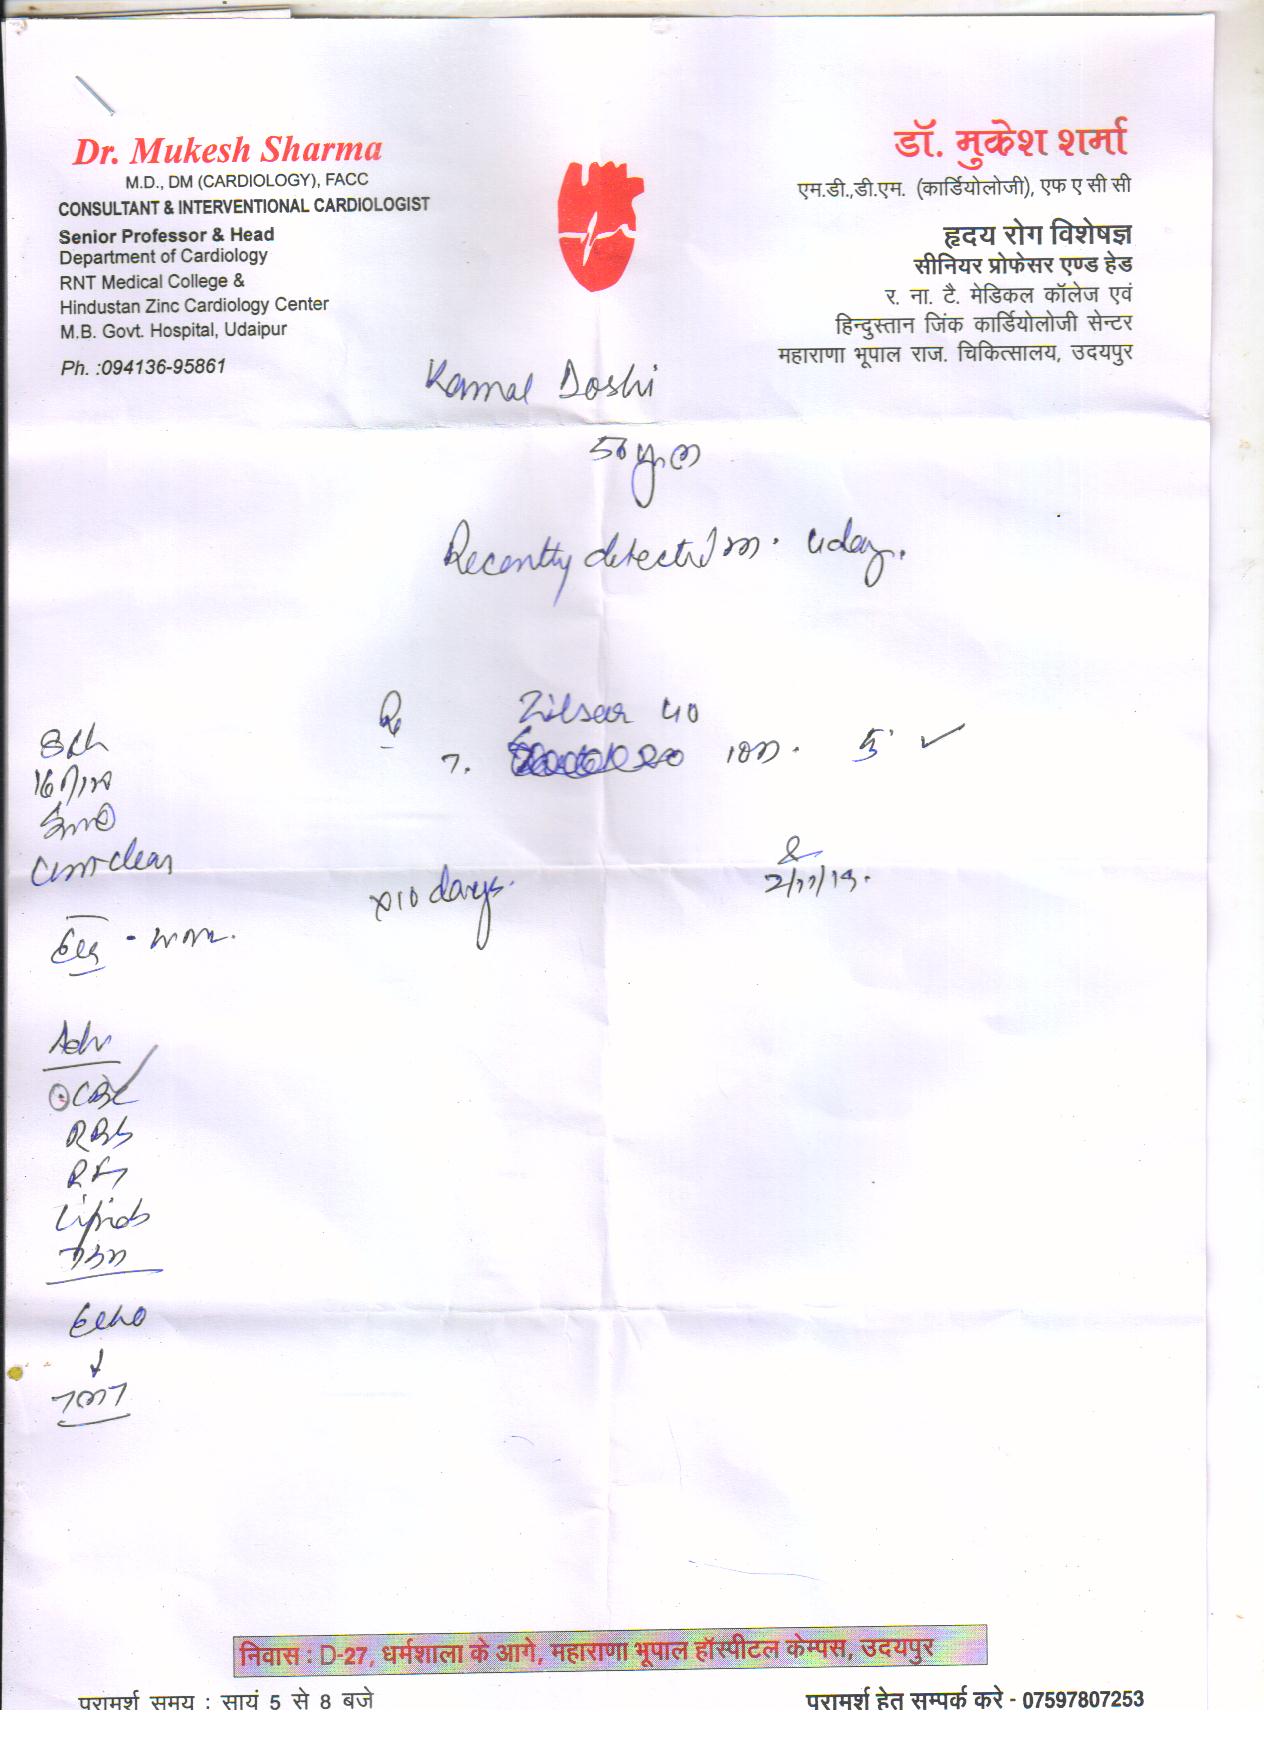 Dr. Mukesh Sharma
M.D., DM (CARDIOLOGY), FACC
CONSULTANT & INTERVENTIONAL CARDIOLOGIST
Senior Professor & Head
Department of Cardiology
RNT Medical College &
Hindustan Zinc Cardiology Center
M.B. Govt. Hospital, Udaipur
Ph. :094136-95861
डॉ. मुकेश शर्मा
एम.डी.,डी.एम. (कार्डियोलोजी), एफ ए सी सी
हृदय रोग विशेषज्ञ
सीनियर प्रोफेसर एण्ड हेड
र. ना. टै. मेडिकल कॉलेज एवं
हिन्दुस्तान जिंक कार्डियोलोजी सेन्टर
महाराणा भूपाल राज. चिकित्सालय, उदयपुर
Kamal Doshi
Recently detected
Zilsar 40
clear
x10 days.
2/11/19.
Adv
CBC
RBS
RFT
Lipids
Echo
TMT
निवास : D-27, धर्मशाला के आगे, महाराणा भूपाल हॉस्पीटल केम्पस, उदयपुर
परामर्श समय : सायं 5 से 8 बजे
परामर्श हेतु सम्पर्क करे - 07597807253